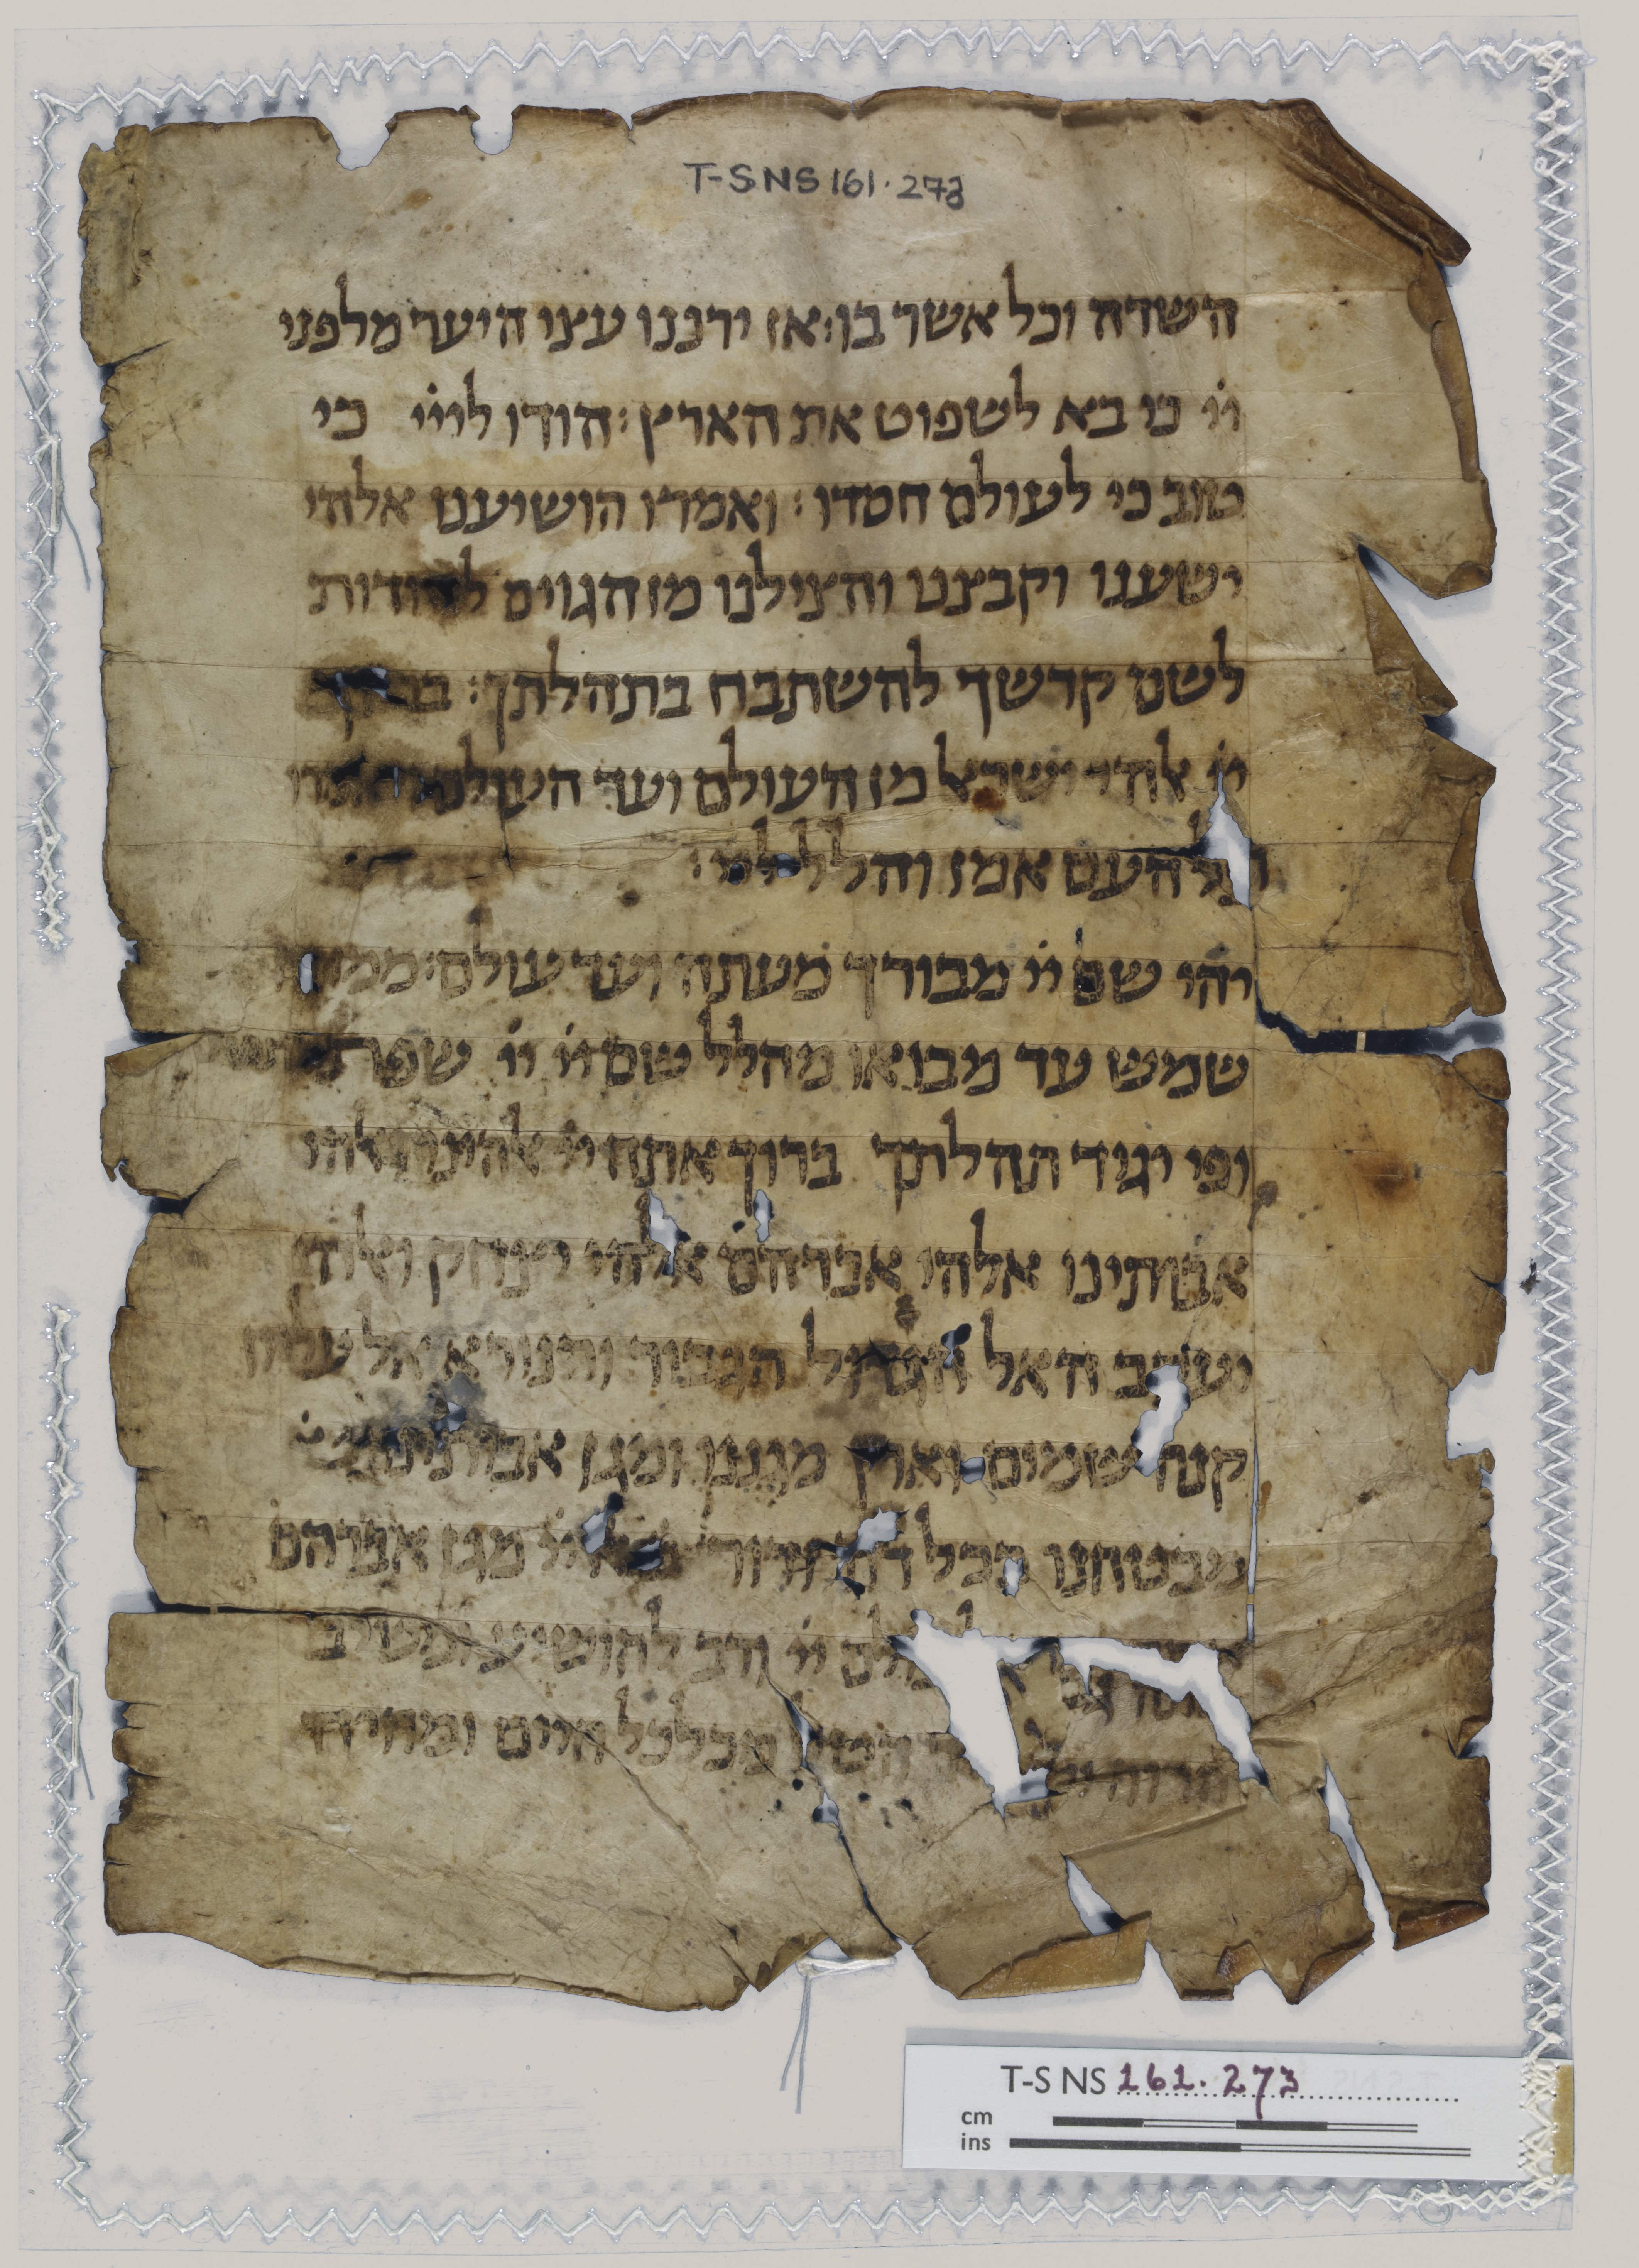 T-S NS 161.273
השדה וכל אשר בו׃ אז ירננו עצי היער מלפני
ייֹ כי בא לשפוט את הארץ׃ הודו לייֹ כי
טוב כי לעולם חסדו׃ ואמרו הושיענו אלהי
ישענו וקבצנו והצילנו מן הגוים להודות
לשם קדשך להשתבח בתהלתך׃ ברוך
ייֹ אלהי ישראל מן העולם ועד העולם
העם אמן והלל
יהי שם ייֹ מבורך מעתה ועד עולם׃
שמש עד מבואו מהלל שם ייֹ ייֹ שפתי
ופי יגיד תהלתך ברוך אתה ייֹ אלהינו אלהי
אבותינו אלהי אברהם אלהי יצחק
האל הגדול הגבור והנורא אל עליון
קנה שמים וארץ מגננו ומגן אבותינו
מבטחנו בכל דור ודור ייֹ מגן אברהם
ייֹ ורב להושיע
מכלכל חיים
T-S NS 161.273
cm
ins